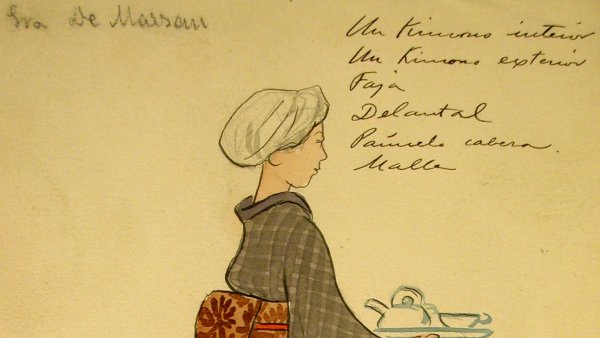 Sra De Marsau
Un Kimono interior
Un Kimono exterior
Faja
Delantal
Pañuelo cabeza.
Malla